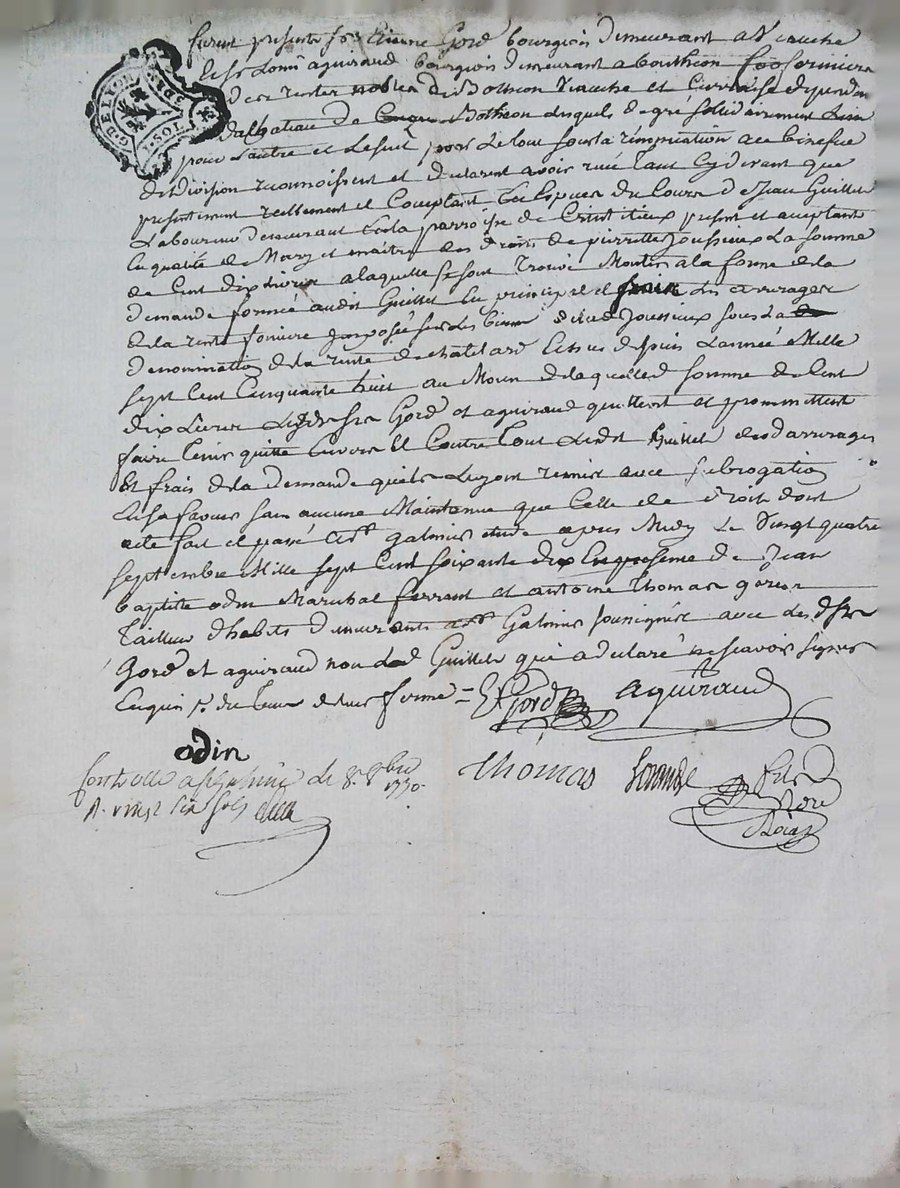 furent presents sr Etienne Gord bourgeois demeurant a Veauche
et sr domq aguiraud bourgeois demeurant a bouthéon fermiers
des rentes nobles de Bothéon Veauche et dependan
du château de Bothéon lesquels de gré solidairement l'un
pour l'autre et le seul pour le tout sous la renonciation au benefice
de division reconnoissent et déclarent avoir reçu tant cy devant que
presentement reellement et comptant en Especes du Cours de Jean Guillet
Laboureur demeurant en la parroisse de present et aceptant
En qualité de Mary et maitre des droits de pierrette Joussieux La somme
de Cent dix livres a laquelle se sont trouvé Monter a la forme de la
demande formée audit Guillet Le principal et frais des arrerages
de la rente fonciere imposée sur Les biens dud Joussieux sous la
denomination de la rente de chatelard Echus depuis L'année Mille
sept Cent Cinquante huit au Moyen de laquelle somme de Cent
dix Livres Lesd srs Gord et aguiraud quittent et promettent
faire tenir quitte Envers Et Contre tout Ledt Guillet desd arrerages
Et frais de la demande qu'ils Luy ont remis avec subrogation
En sa faveur sans aucune Maintenue que Celle de droit dont
acte fait et passé a St galmier etude apres Midy Le Vingt quatre
septembre Mille sept Cent soixante dix En presence de Jean
baptiste odin Marechal ferrant et antoine Thomas garçon
Tailleur d'habits demeurants a St Galmier soussignés avec Les dt srs
Gord et aguiraud non Led Guillet qui a declaré ne sçavoir signer
Enquis
forme = Et Gord aguiraud
odin
Thomas
Controllé a St galmier le 8e 8bre
1770.
R. vingt six sols